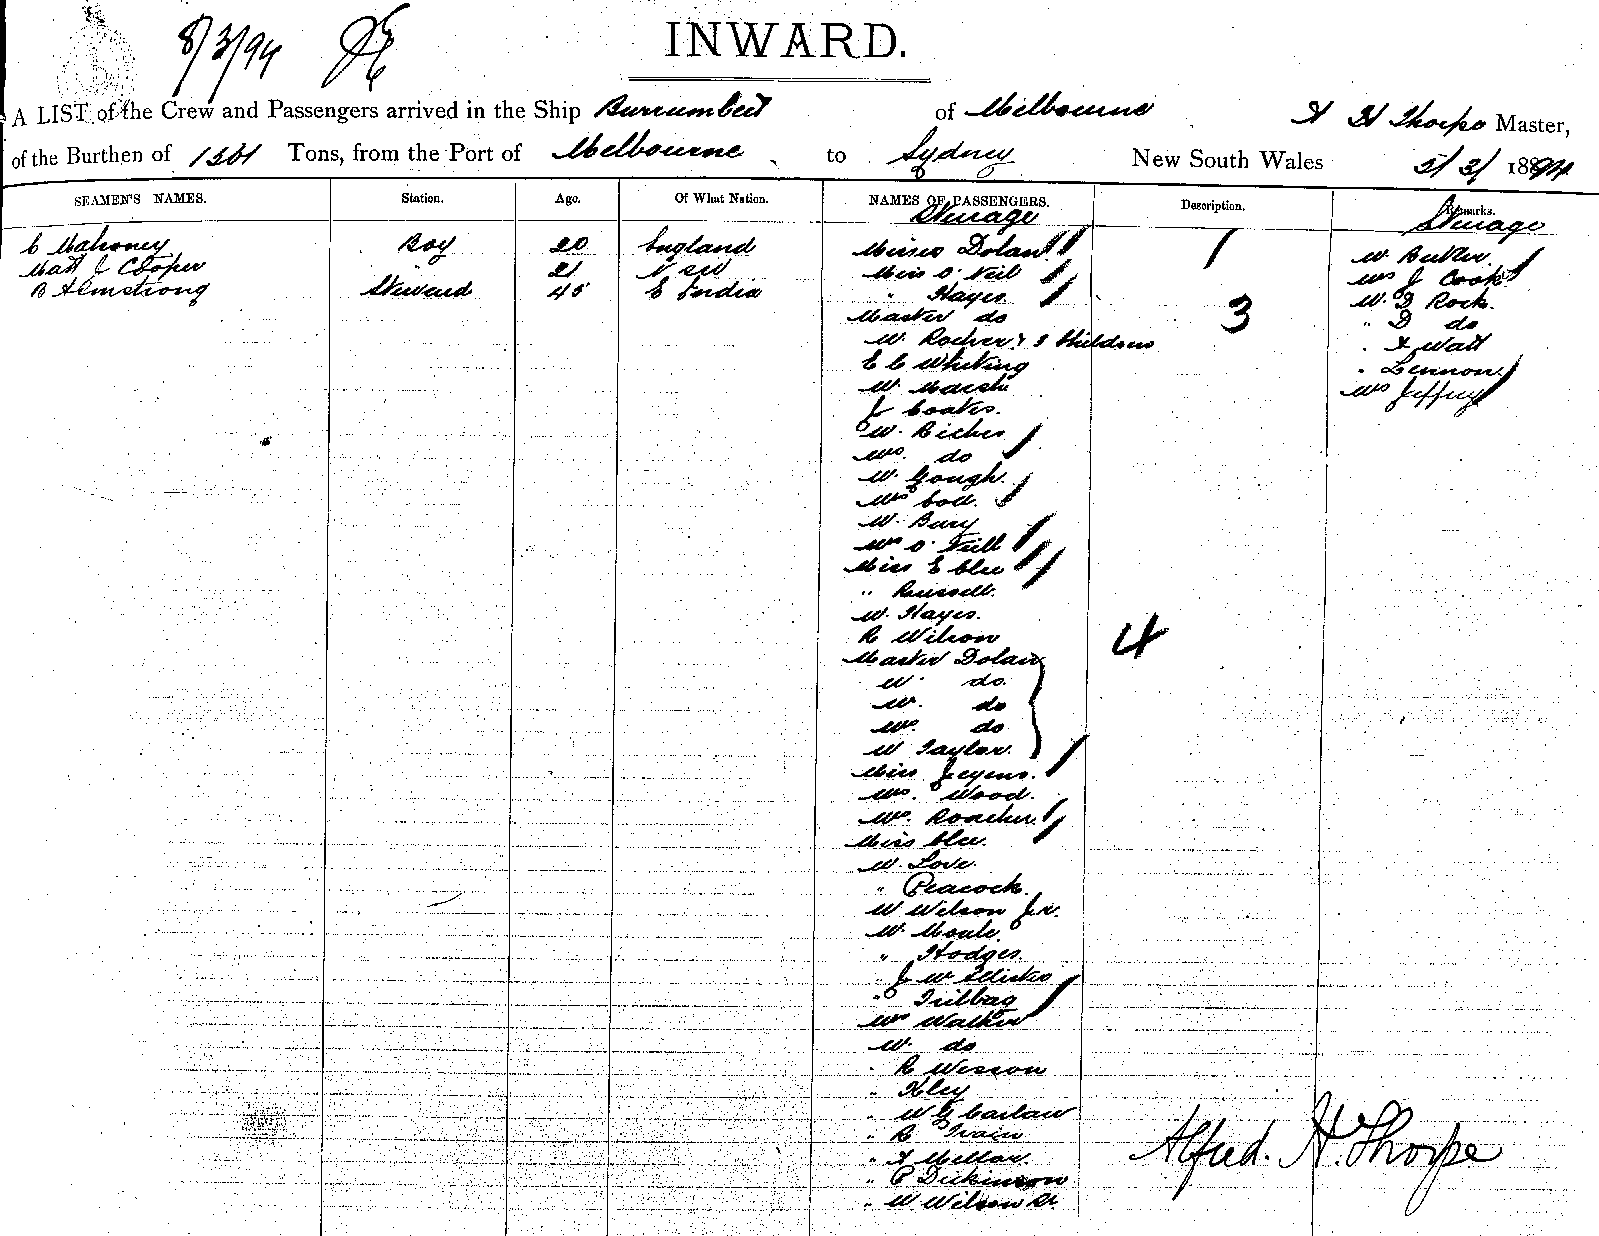 8/3/94
INWARD.
A LIST of the Crew and Passengers arrived in the Ship Burrumbeet of Melbourne A H Thorpe Master,
of the Burthen of Tons, from the Port of Melbourne to Sydney New South Wales 5/3/ 1894
SEAMEN'S NAMES. Station. Age. Of What Nation. NAMES OF PASSENGERS. Description. Remarks.
Steerage Steerage
C Mahoney Boy 20 England Misses Dolan W. Butler
Matt J Cooper 21 N S W Miss O'Neil Mrs J Cook
B Armstrong Steward 45 E India " Hayes W. D Rock.
Master do 3 " D do
W. Rocher & 3 Childrens " A Watt
E C Whiting " Lennon.
W. Marsh Mrs Jeffrey
J Coates.
W. Biches
Mrs. do
W. Gough.
Mrs
W. Bury
Mrs O'Neill
Miss E Clee
" Russell.
W. Hayes.
R Wilson 4
Master Dolan
W. do.
W. do
Mrs. do
W Taylor.
Miss Jeyens.
Mrs. Wood.
Mrs. Roacher.
Miss Clee.
W. Love.
" Peacock.
W Wilson Jr.
W. Moule.
" Hodges.
" J W
"
Mrs Walker
W. do
" R Wesson
" Kley
" W G Carlaw
" R Train
" A Millar.
" P Dickinson
" W Wilson Sr.
Alfred. H. Thorpe